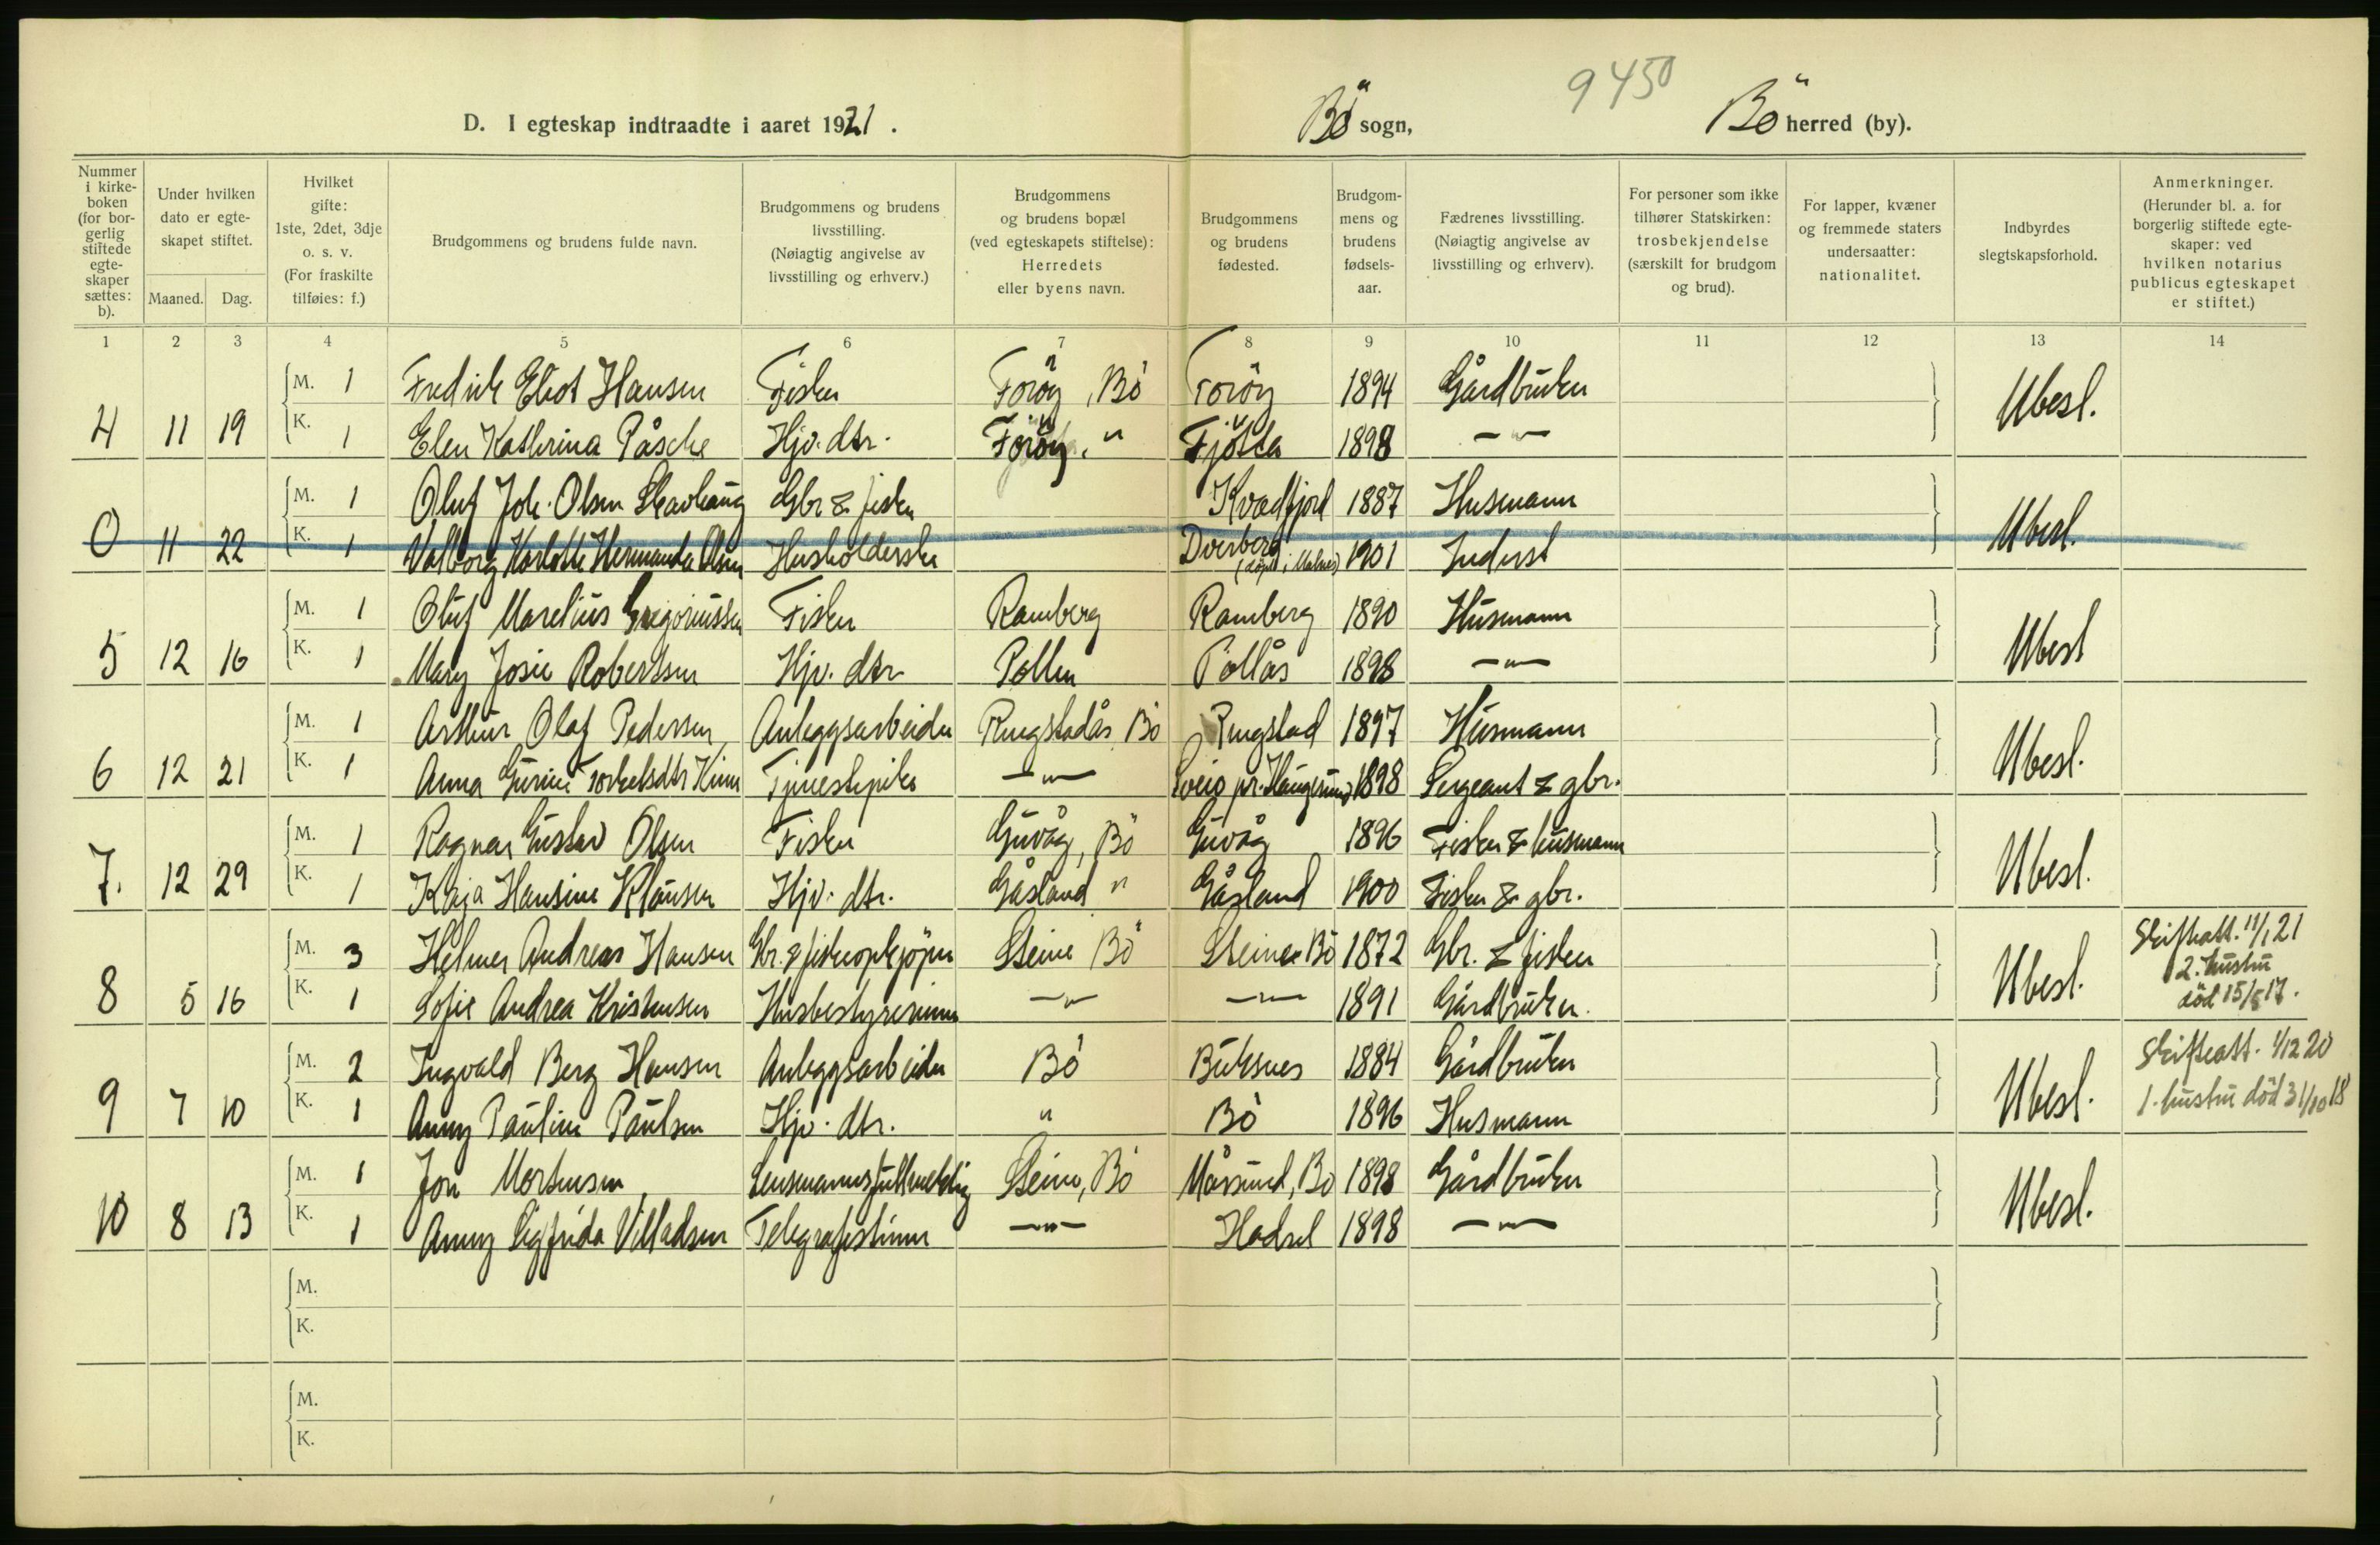 9450
D. I egteskap indtraadte i aaret 1921. Bö sogn, Bö herred (by).
Nummer i kirke-boken (for bor-gerlig stiftede egte-skaper sættes: b).
Under hvilken dato er egte-skapet stiftet.
Maaned. Dag.
Hvilket gifte: 1ste, 2det, 3dje o. s. v. (For fraskilte tilføies: f.)
Brudgommens og brudens fulde navn.
Brudgommens og brudens livsstilling. (Nøiagtig angivelse av livsstilling og erhverv.)
Brudgommens og brudens bopæl (ved egteskapets stiftelse): Herredets eller byens navn.
Brudgommens og brudens fødested.
Brudgom-mens og brudens fødsels-aar.
Fædrenes livsstilling. (Nøiagtig angivelse av livsstilling og erhverv).
For personer som ikke tilhører Statskirken: trosbekjendelse (særskilt for brudgom og brud).
For lapper, kvæner og fremmede staters undersaatter: nationalitet.
Indbyrdes slegtskapsforhold.
Anmerkninger. (Herunder bl. a. for borgerlig stiftede egte-skaper: ved hvilken notarius publicus egteskapet er stiftet.)
1 2 3 4 5 6 7 8 9 10 11 12 13 14
M. 1 Fredrik Eliot Hansen Fisker Foröy, Bö Foröy 1894 Gårdbruker
4 11 19 K. 1 Elen Kathrina Påsche Hjv. dtr. Foröy, " Tjötta 1898 —"— Ubesl.
M. 1 Oluf Joh. Olsen Skavhaug Gbr & fisker Kvædfjord 1887 Husmann
0 11 22 K. 1 Valborg Karlotte Hermanda Olsen Husholderske Dverberg 1901 Inderst Ubesl.
M. 1 Oluf Marelius Gregoriussen Fisker Ramberg Ramberg 1890 Husmann
5 12 16 K. 1 Mary Josie Robertsen Hjv. dtr Pollen Pollås 1898 —"— Ubesl
M. 1 Arthur Olaf Pedersen Anleggsarbeider Ringstadås Bö Ringstad 1897 Husmann
6 12 21 K. 1 Anna Gurine Torkelsdtr Tjenestepike —"— Sveio pr. Haugesund 1898 Sergeant & gbr. Ubesl.
M. 1 Ragnar Gustav Olsen Fisker Guvåg, Bö Guvåg 1896 Fisker & husmann
7. 12 29 K. 1 Kaja Hansine Klausen Hjv. dtr. Gåsland " Gåsland 1900 Fisker & gbr. Ubesl.
M. 3 Helmer Andreas Hansen Gbr. & fiskeopkjöper Steine Bö Steine Bö 1872 Gbr. & fisker Skifteatt. 11/1 21
8 5 16 K. 1 Sofie Andrea Kristensen Husbestyrerinne —"— —"— 1891 Gårdbruker. Ubesl. 2. hustru död 15/5 17.
M. 2 Ingvald Berg Hansen Anleggsarbeider Bö Buksnes 1884 Gårdbruker Skifteatt. 1/12 20
9 7 10 K. 1 Anny Pauline Paulsen Hjv. dtr. " Bö 1896 Husmann Ubesl. 1. hustru död 31/10 18
M. 1 Jon Mortensen Lensmannsfullmektig Steine, Bö Mårsund, Bö 1898 Gårdbruker
10 8 13 K. 1 Anny Sigfrida Villadsen Telegrafistinne —"— Hadsel 1898 —"— Ubesl.
M.
K.
M.
K.